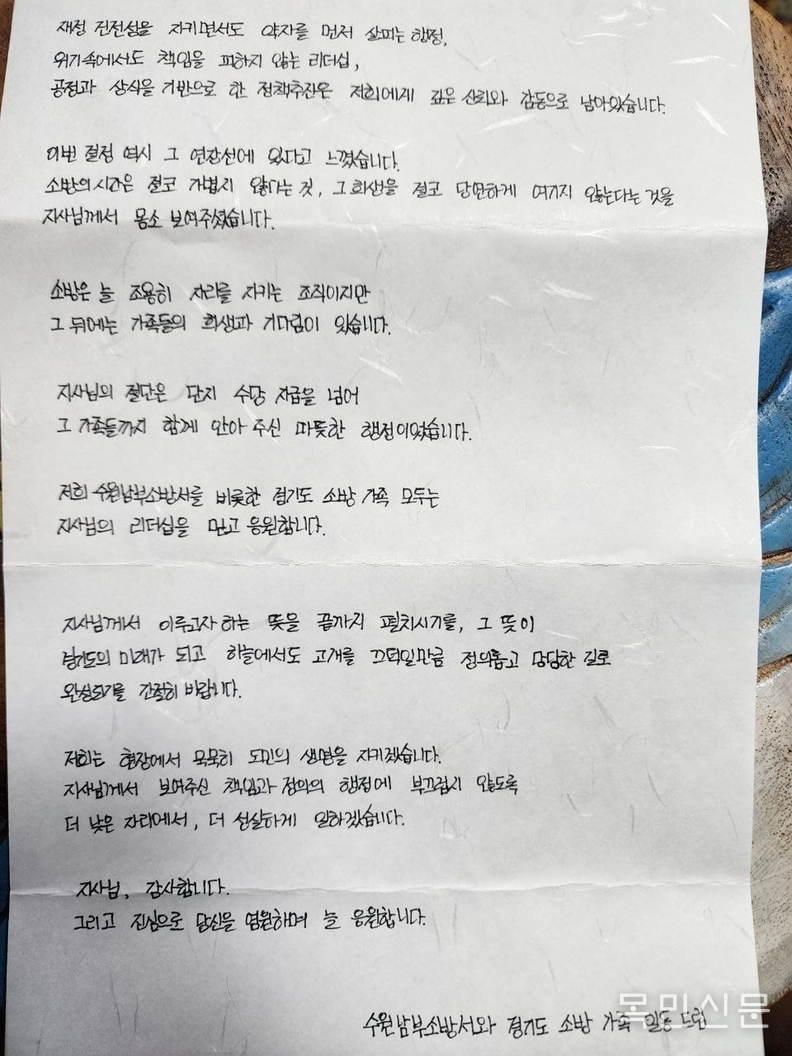 재정 건전성을 지키면서도 약자를 먼저 살피는 행정,
위기속에서도 책임을 피하지 않는 리더십,
공정과 상식을 기반으로 한 정책추진은 저희에게 깊은 신뢰와 감동으로 남아있습니다.
이번 결정 역시 그 연장선에 있다고 느꼈습니다.
소방의 시간은 결코 가볍지 않다는 것, 그 희생을 결코 당연하게 여기지 않는다는 것을
지사님께서 몸소 보여주셨습니다.
소방은 늘 조용히 자리를 지키는 조직이지만
그 뒤에는 가족들의 희생과 기다림이 있습니다.
지사님의 결단은 단지 수당 지급을 넘어
그 가족들까지 함께 안아 주신 따뜻한 행정이었습니다.
저희 수원남부소방서를 비롯한 경기도 소방 가족 모두는
지사님의 리더십을 믿고 응원합니다.
지사님께서 이루고자 하는 뜻을 끝까지 펼치시기를, 그 뜻이
경기도의 미래가 되고 하늘에서도 고개를 끄덕일만큼 정의롭고 당당한 길로
완성되기를 간절히 바랍니다.
저희는 현장에서 묵묵히 도민의 생명을 지키겠습니다.
지사님께서 보여주신 책임과 정의의 행정에 부끄럽지 않도록
더 낮은 자리에서, 더 성실하게 일하겠습니다.
지사님, 감사합니다.
그리고 진심으로 당신을 염원하며 늘 응원합니다.
수원남부소방서와 경기도 소방 가족 일동 드림
목민신문